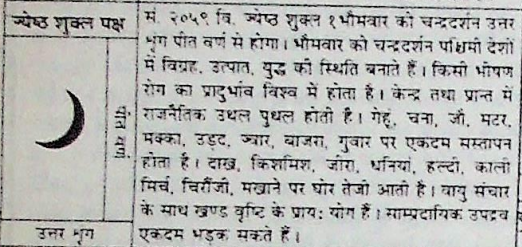 ज्येष्ठ शुक्ल पक्ष
पीत वर्ण
उत्तर भृंग
सं. २०५९ वि. ज्येष्ठ शुक्ल १ भौमवार को चन्द्रदर्शन उत्तर
भृंग पीत वर्ण से होगा। भौमवार को चन्द्रदर्शन पश्चिमी देशों
में विग्रह, उत्पात, युद्ध की स्थिति बनाते हैं। किसी भीषण
रोग का प्रादुर्भाव विश्व में होता है। केन्द्र तथा प्रान्त में
राजनैतिक उथल पुथल होती है। गेहूं, चना, जौ, मटर,
मक्का, उड़द, ज्वार, बाजरा, गुवार पर एकदम मस्तापन
होता है। दाख, किशमिश, जीरा, धनियां, हल्दी, काली
मिर्च, चिरौंजी, मखाने पर घोर तेजी आती है। वायु संचार
के साथ खण्ड वृष्टि के प्राय: योग हैं। साम्प्रदायिक उपद्रव
एकदम भड़क सकते हैं।